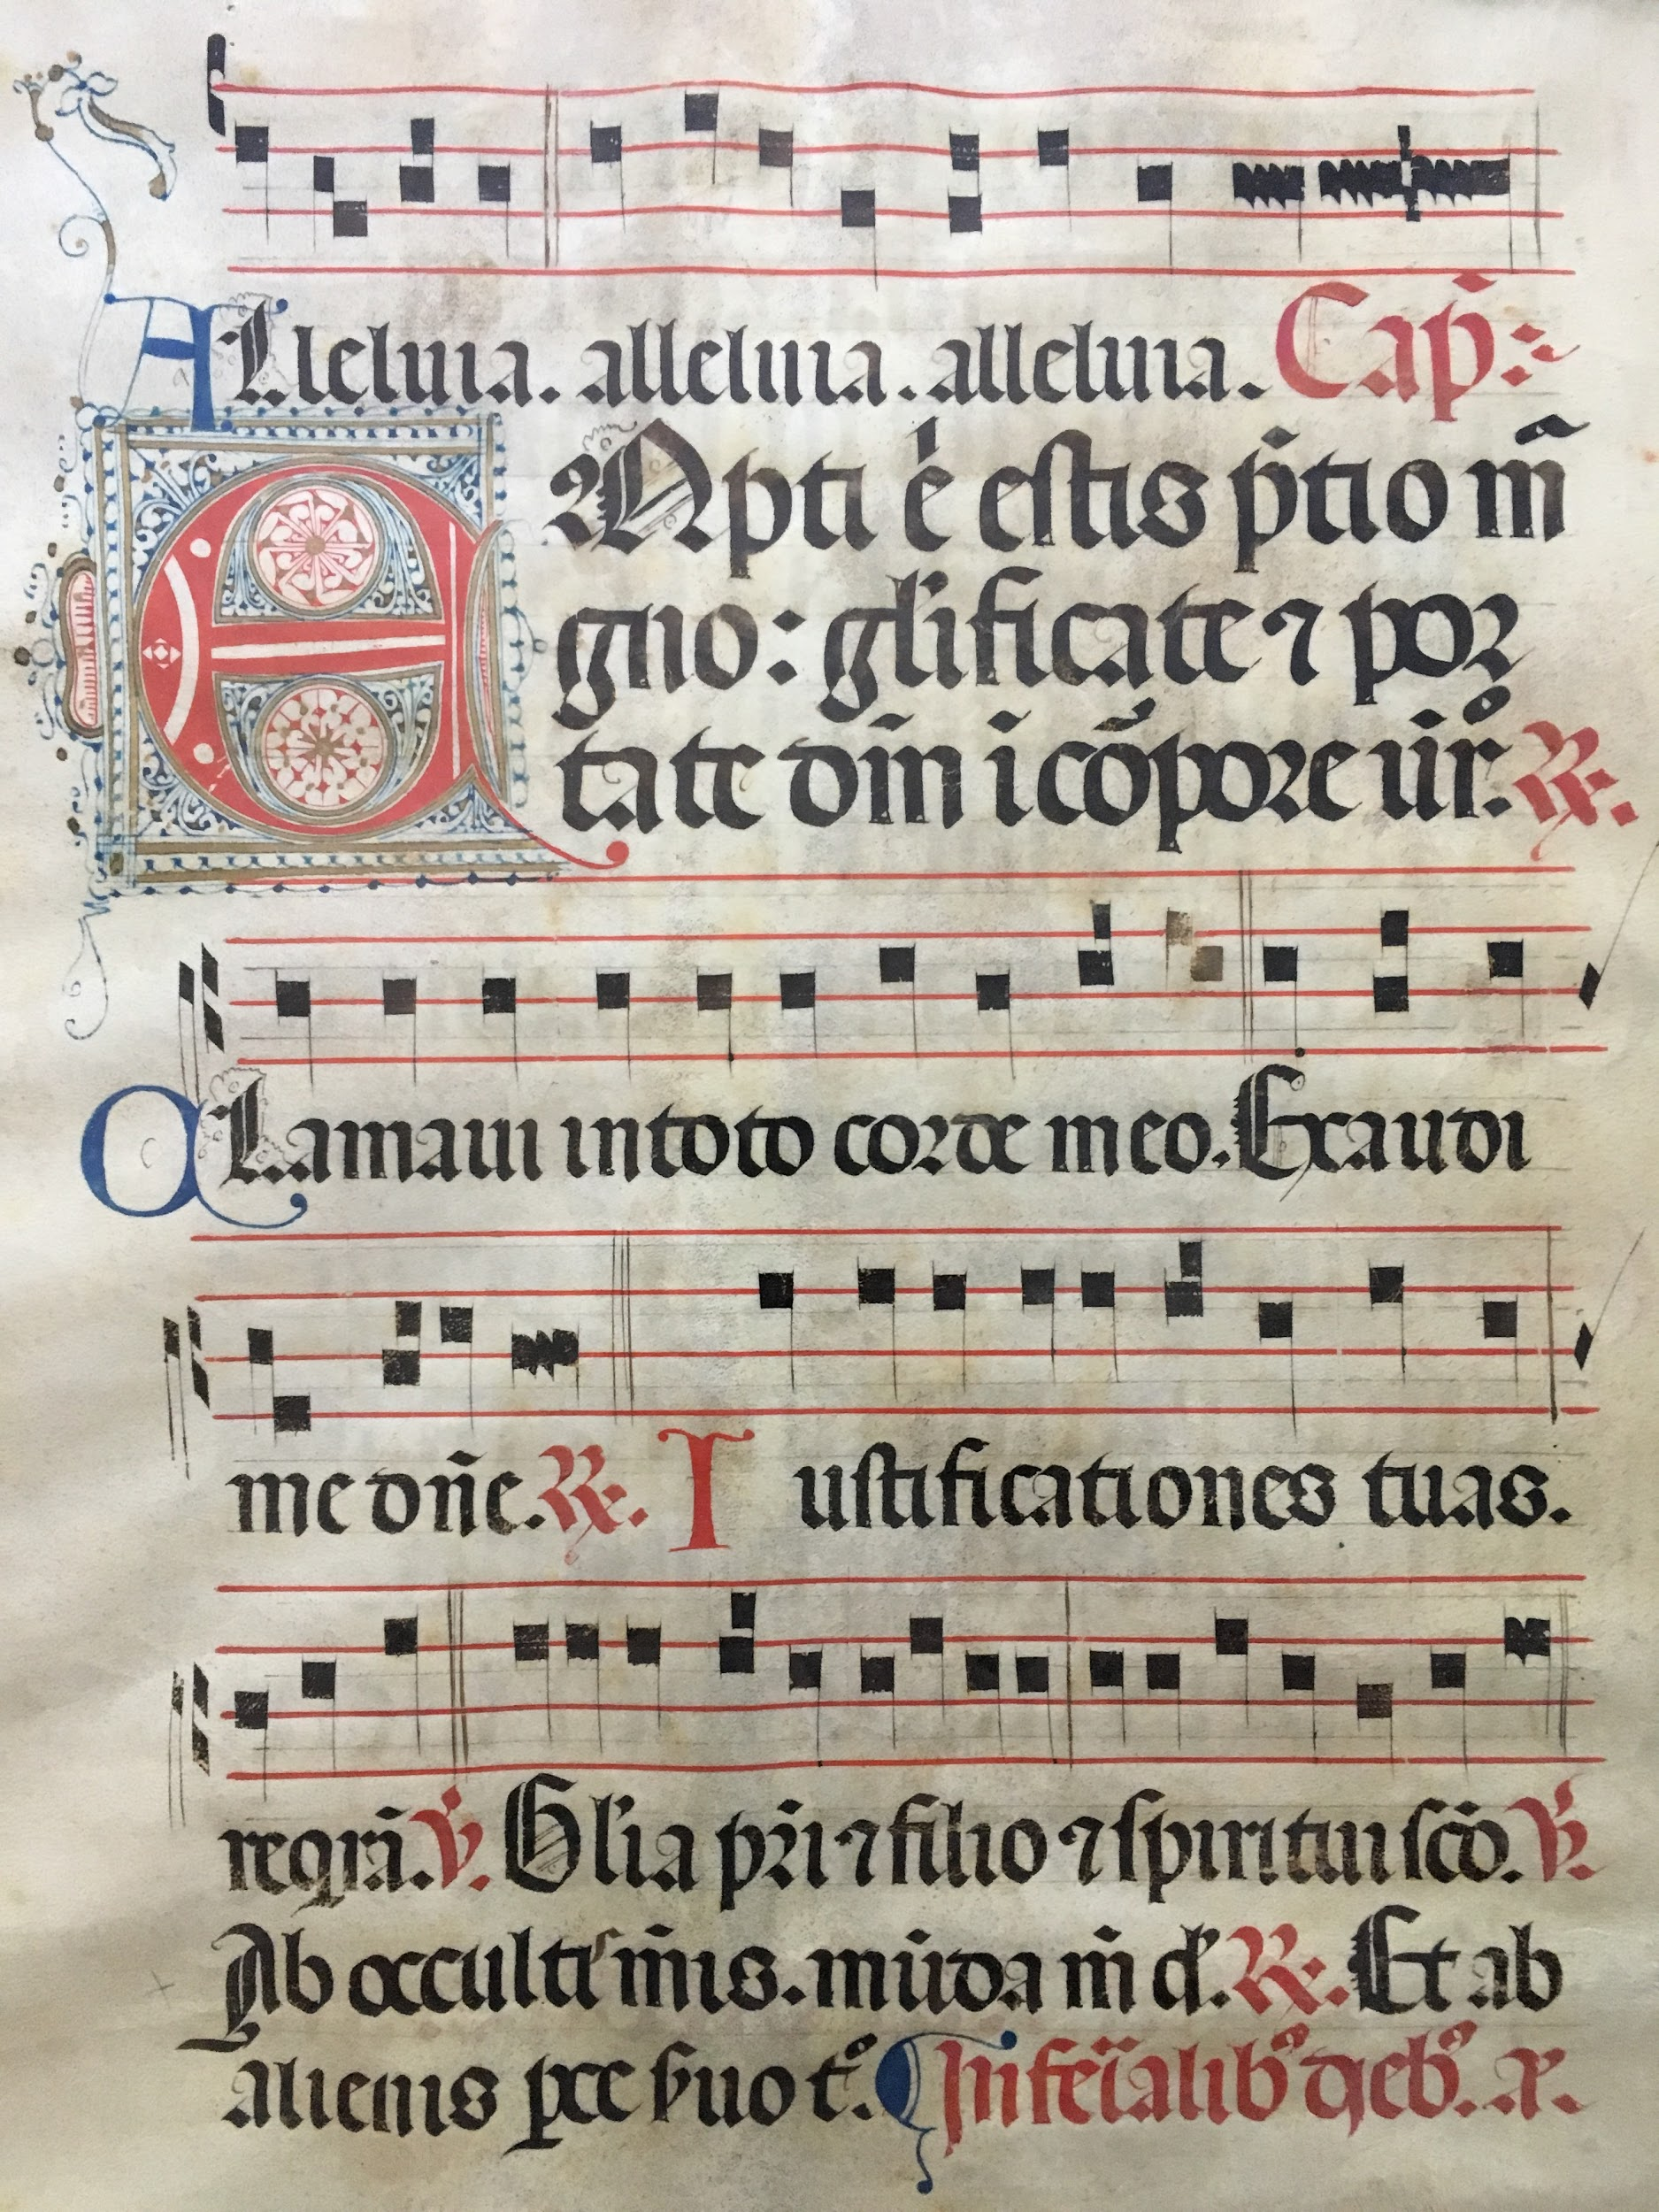 ALleluia. alleluia. alleluia. Cap̄:
EMpti .e. estis p̄tio m̄
gno: gl'ificate ⁊ por
tate dm̄ i cōpore ur̄o. ℟.
CLamaui in toto corde meo. Exaudi
me dn̄e. ℟. Iustificationes tuas.
reqrā. ℣. Gl'ia pr̄i ⁊ filio ⁊ spiritui scō. ℣.
Ab occultis m̄is. mūda m̄ d'. ℟. Et ab
alienis pce s̄uo t°. ¶ In fer̄ialib⁹ dieb⁹. a.